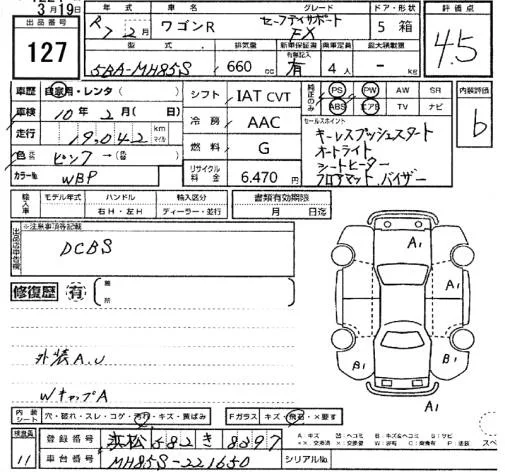 3月19日
出品番号
127
年式 車名 グレード ドア・形状
R7 2月 ワゴンR セーフティサポート FX 5 箱
評価点
4.5
型式 排気量 新車保証書 乗車定員 最大積載量
有無記入
5BA-MH85S 660cc 有 4人 - kg
車歴 自家用・レンタ( )
車検 10年2月( 日)
走行 19,042 km マイル
色 ピンク→( )
カラー№ WBP
シフト IAT CVT
冷房 AAC
燃料 G
リサイクル料金 6,470円
純正のみ
PS PW AW SR
ABS エアB TV ナビ
内装評価
b
セールスポイント
キーレスプッシュスタート
オートライト
シートヒーター
フロアマット、バイザー
輸入車 モデル年式 ハンドル 輸入区分
右H・左H ディーラー・並行
書類有効期限
月 日迄
※注意事項等記載
DCBS
修復歴 有 箇所
外装A.U
WキャップA
A1
A1
B1
B1
A1
内装シート 穴・破れ・スレ・コゲ・汚れ・キズ・黄ばみ
Fガラス キズ・飛石・×要す
検査員
11
登録番号 浜松 582 き 8397
車台番号 MH85S-221650
シリアル№